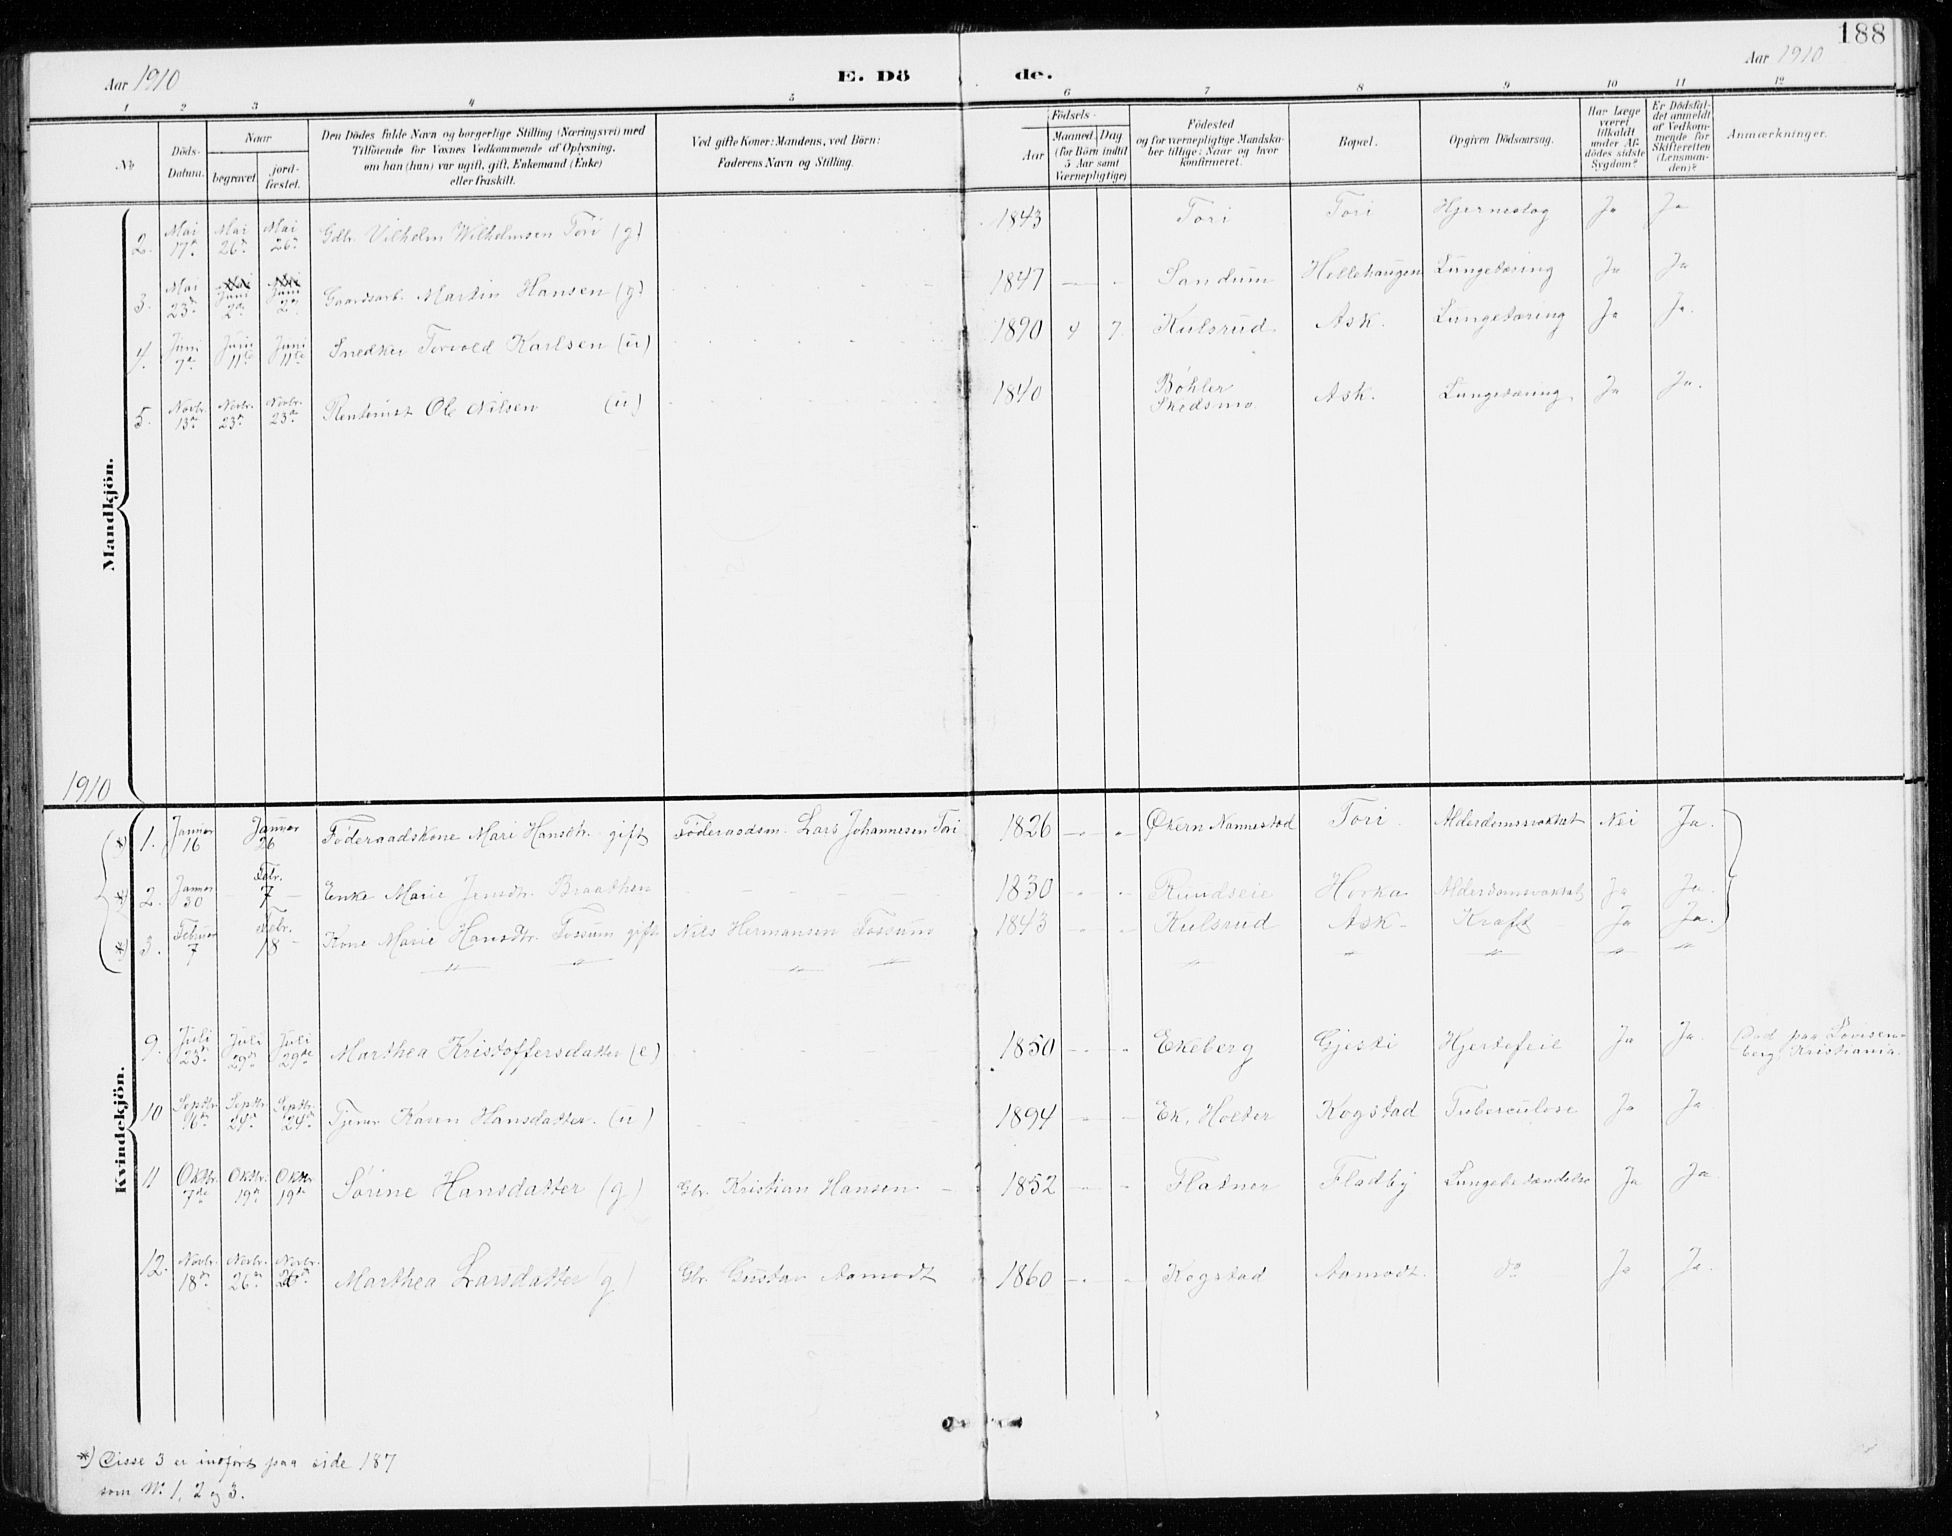 188
Aar 1910
E. Dö de.
Aar 1910
1 2 3 4 5 6 7 8 9 10 11 12
No
Döds-Datum.
Naar
begravet.
jord-fæstet.
Den Dödes fulde Navn og borgerlige Stilling (Næringsvei) med
Tilföiende for Voxnes Vedkommende af Oplysning,
om han (hun) var ugift, gift, Enkemand (Enke)
eller fraskilt.
Ved gifte Koner: Mandens, ved Börn:
Faderens Navn og Stilling.
Födsels-
Aar
Maaned. Dag
(for Börn indtil
5 Aar samt
Værnepligtige)
Födested
og for værnepligtige Mandska-
ber tillige: Naar og hvor
konfirmeret.
Bopæl.
Opgiven Dödsaarsag.
Har Læge
været
tilkaldt
under Af-
dödes sidste
Sygdom?
Er Dödsfal-
det anmeldt
af Vedkom-
mende for
Skifteretten
(Lensman-
den)?
Anmærkninger.
Mandkjön.
2. Mai 17de Mai 26de Mai 26de Gdbr. Vilhelm Wilhelmsen Tori (g) 1843 Tori Tori Hjerneslag Ja Ja
3. Mai 23de Juni 2den Juni 2den Gaardsarb. Martin Hansen (g) 1847 Sandum Hellehaugen Lungetæring Ja Ja
4. Juni 7de Juni 11te Juni 11te Snedker Torvald Karlsen (u) 1890 4 7 Kulsrud Ask. Lungetæring Ja Ja.
5. Novbr. 13de Novbr. 23de Novbr. 23de Rentenist Ole Nilsen (u) 1840 Bøhler Skedsmo Ask. Lungetæring Ja Ja.
1910
Kvindekjön.
*) 1. Januar 16 Januar 26 Føderaadskone Mari Hansdtr. gift Føderaadsm. Lars Johannesen Tori 1826 Økern Nannestad Tori Alderdomssvakhet Nei Ja.
*) 2. Januar 30 Febr. 7 Enke Marie Jensdtr. Braathen 1830 Rundseie Horka Alderdomssvakhet Ja Ja.
*) 3. Februar 7 Febr. 18 Kone Marie Hansdtr. Fossum gift Nils Hermansen Fossum 1843 Kulsrud Ask Kræft Ja Ja.
9. Juli 23de Juli 29de Juli 29de Marthea Kristoffersdatter (e) 1850 Ekeberg Gjesti Hjertefeil Ja Ja. Død paa Lovisen-
berg, Kristiania.
10 Septbr. 16de Septbr. 24de Septbr. 24de Tjener Karen Hansdatter. (u) 1894 Ek, Holter Kogstad Tuberculose Ja Ja
11 Oktbr. 7de Oktbr. 19de Oktbr. 19de Sørine Hansdatter (g) Gbr. Kristian Hansen 1852 Flatner Fladby Lungebetændelse Ja Ja.
12. Novbr. 18de Novbr. 26de Novbr. 26de Marthea Larsdatter (g) Gbr. Gustav Aamodt 1860 Kogstad Aamodt. do Ja Ja.
*) Disse 3 er indført paa side 187
som No 1, 2 og 3.